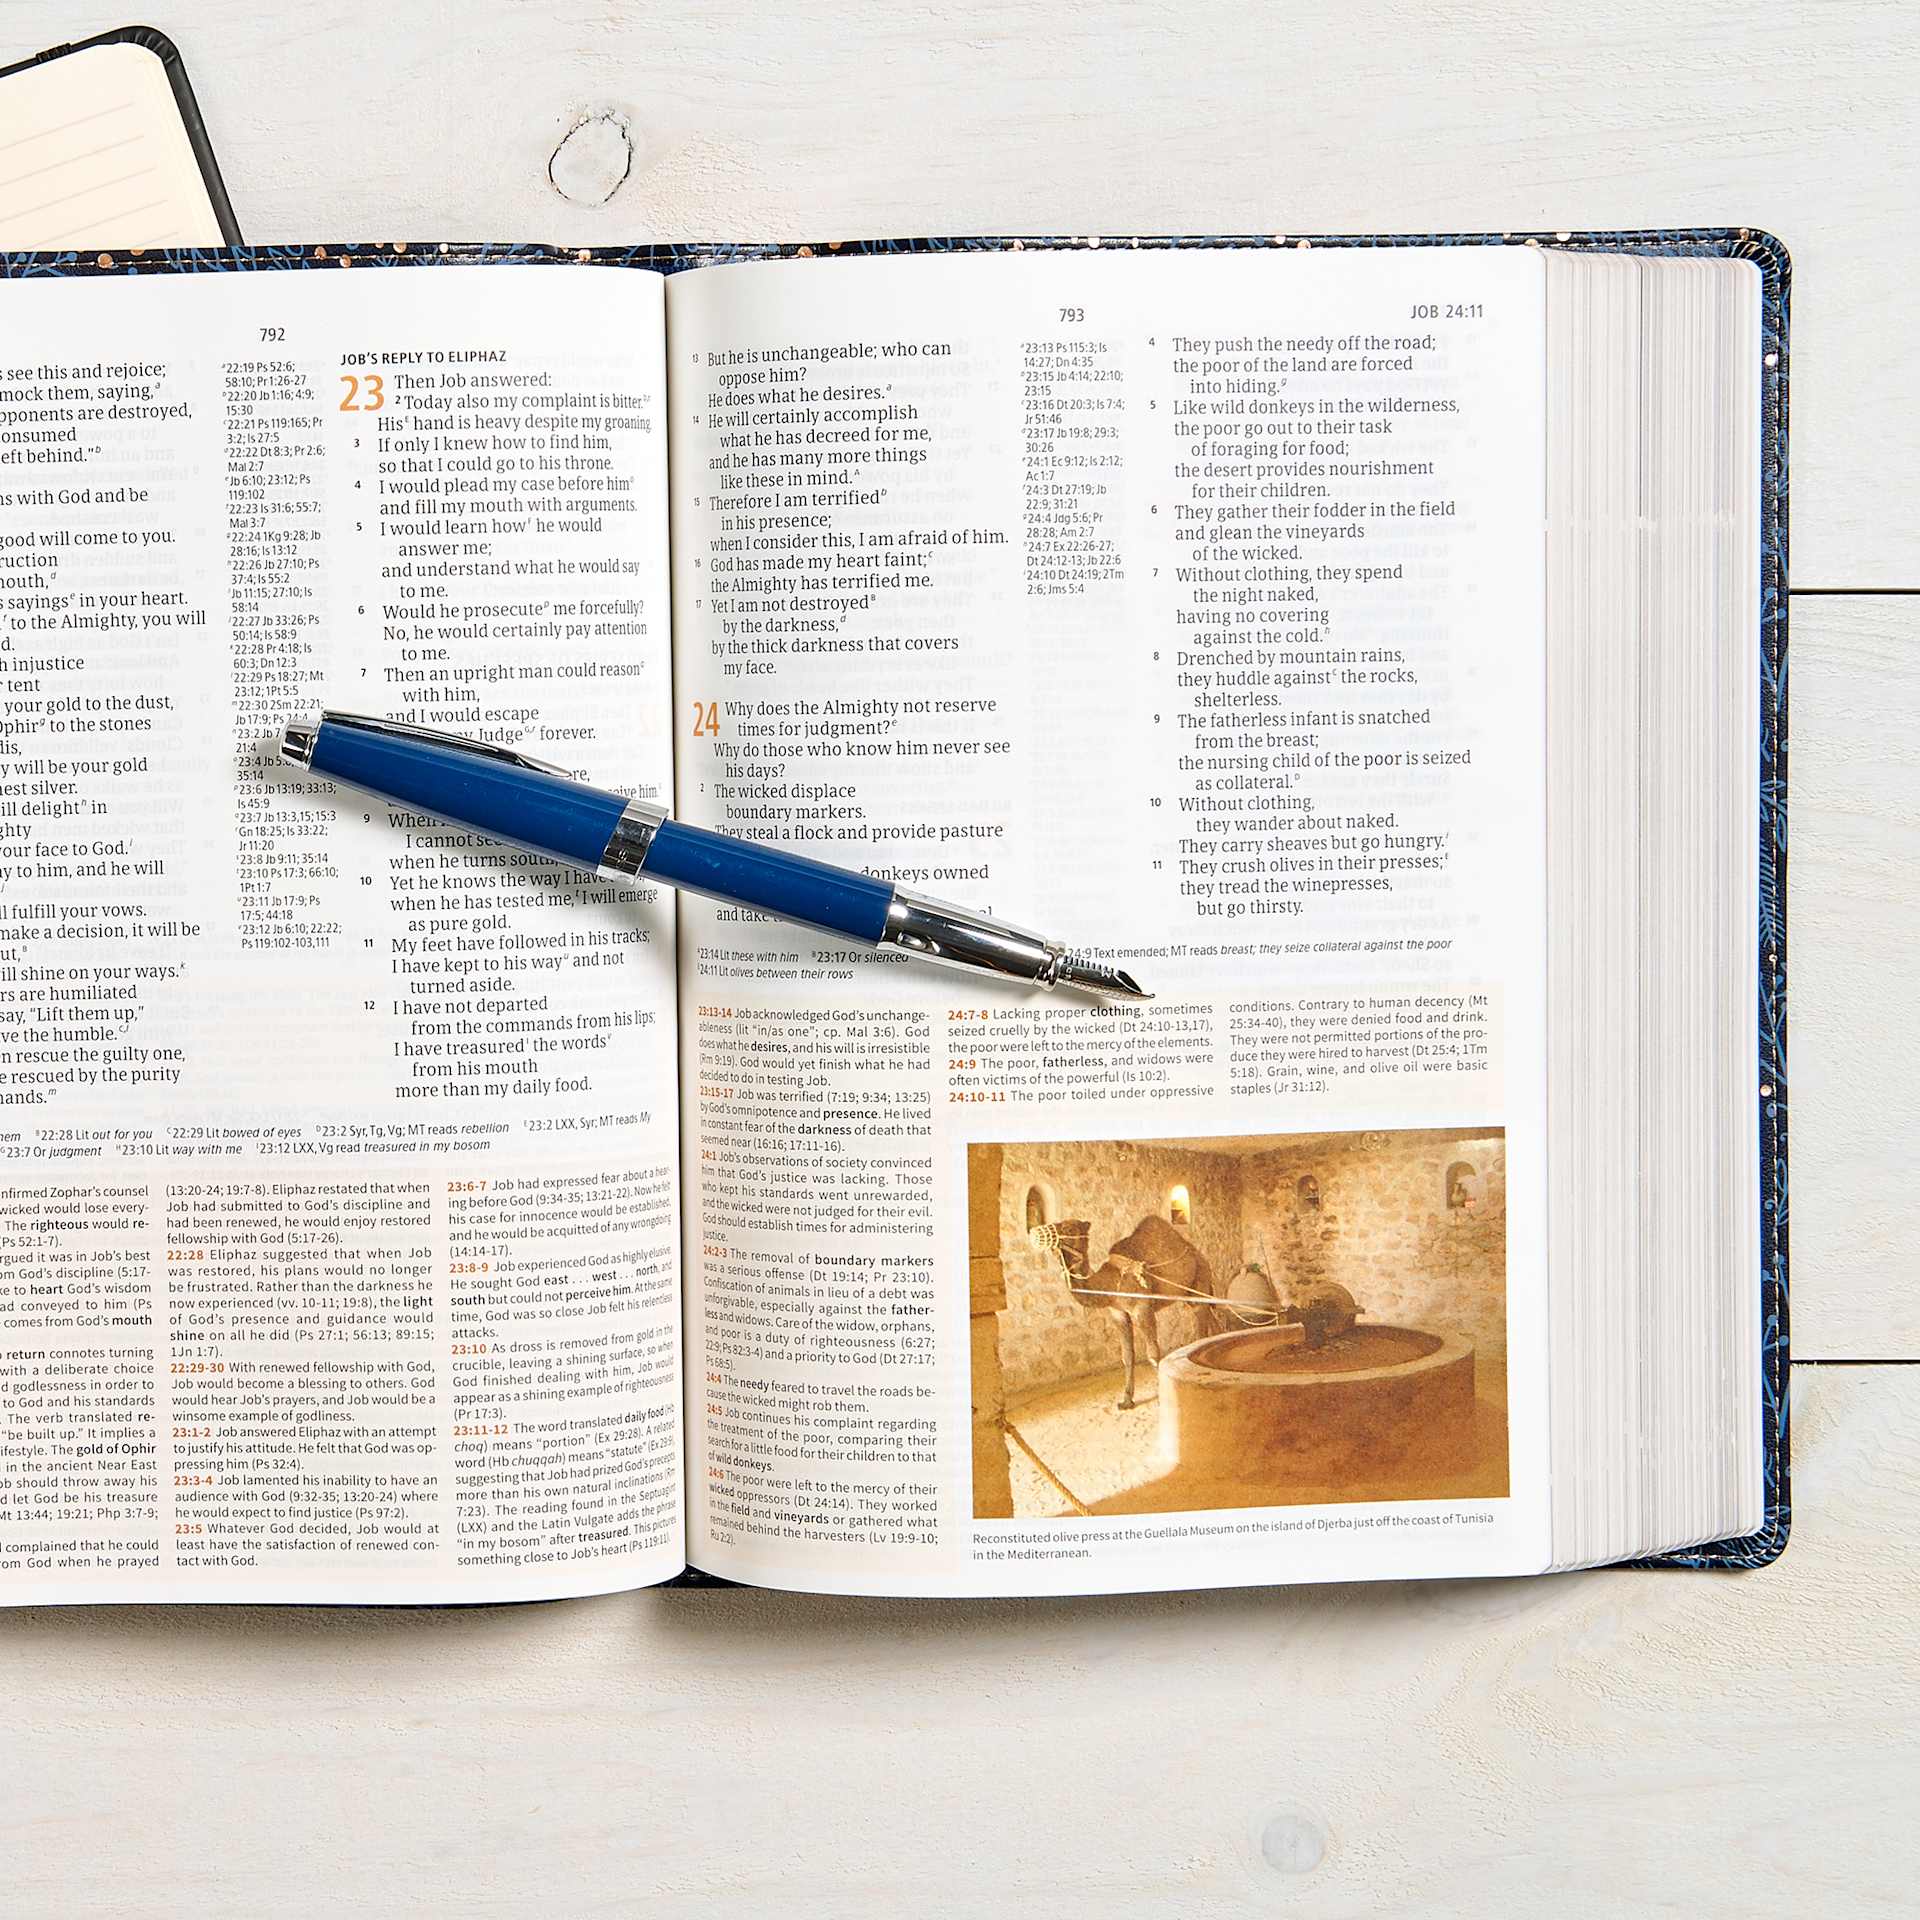 792
s see this and rejoice;
mock them, saying,ᵃ
pponents are destroyed,
onsumed
eft behind."ᵇ
ns with God and be
good will come to you.
ruction
nouth,ᵈ
s sayingsᵉ in your heart.
ᶠ to the Almighty, you will
d.
h injustice
r tent
your gold to the dust,
Ophirᵍ to the stones
dis,
y will be your gold
nest silver.
ill delightʰ in
ghty
your face to God.ⁱ
ay to him, and he will
ʲ
ll fulfill your vows.
make a decision, it will be
ut,ᴮ
vill shine on your ways.ᵏ
rs are humiliated
say, "Lift them up,"
ve the humble.ᶜ,ˡ
en rescue the guilty one,
e rescued by the purity
hands.ᵐ
22:19 Ps 52:6;
58:10; Pr 1:26-27
22:20 Jb 1:16; 4:9;
15:30
22:21 Ps 119:165; Pr
3:2; Is 27:5
22:22 Dt 8:3; Pr 2:6;
Mal 2:7
Jb 6:10; 23:12; Ps
119:102
22:23 Is 31:6; 55:7;
Mal 3:7
22:24 1Kg 9:28; Jb
28:16; Is 13:12
22:26 Jb 27:10; Ps
37:4; Is 55:2
Jb 11:15; 27:10; Is
58:14
22:27 Jb 33:26; Ps
50:14; Is 58:9
22:28 Pr 4:18; Is
60:3; Dn 12:3
22:29 Ps 18:27; Mt
23:12; 1Pt 5:5
22:30 2Sm 22:21;
Jb 17:9; Ps 24:4
23:2 Jb 7
21:4
23:4 Jb 5:8;
35:14
23:6 Jb 13:19; 33:13;
Is 45:9
23:7 Jb 13:3,15; 15:3
Gn 18:25; Is 33:22;
Jr 11:20
23:8 Jb 9:11; 35:14
23:10 Ps 17:3; 66:10;
1Pt 1:7
23:11 Jb 17:9; Ps
17:5; 44:18
23:12 Jb 6:10; 22:22;
Ps 119:102-103,111
JOB'S REPLY TO ELIPHAZ
23 Then Job answered:
2 Today also my complaint is bitter.
Hisᴱ hand is heavy despite my groaning
3 If only I knew how to find him,
so that I could go to his throne.
4 I would plead my case before him
and fill my mouth with arguments.
5 I would learn how he would
answer me;
and understand what he would say
to me.
6 Would he prosecute me forcefully?
No, he would certainly pay attention
to me.
7 Then an upright man could reason
with him,
and I would escape
my Judge forever.
ere,
eive him.
9 When
I cannot see
when he turns south,
10 Yet he knows the way I have
when he has tested me, I will emerge
as pure gold.
11 My feet have followed in his tracks;
I have kept to his way and not
turned aside.
12 I have not departed
from the commands from his lips;
I have treasured the words
from his mouth
more than my daily food.
hem ᴮ22:28 Lit out for you ᶜ22:29 Lit bowed of eyes ᴰ23:2 Syr, Tg, Vg; MT reads rebellion ᴱ23:2 LXX, Syr; MT reads My
ᴳ23:7 Or judgment ᴴ23:10 Lit way with me ᴵ23:12 LXX, Vg read treasured in my bosom
nfirmed Zophar's counsel
wicked would lose every-
The righteous would re-
(Ps 52:1-7).
rgued it was in Job's best
om God's discipline (5:17-
ke to heart God's wisdom
ad conveyed to him (Ps
comes from God's mouth
return connotes turning
with a deliberate choice
d godlessness in order to
to God and his standards
The verb translated re-
"be built up." It implies a
ifestyle. The gold of Ophir
in the ancient Near East
ob should throw away his
d let God be his treasure
Mt 13:44; 19:21; Php 3:7-9;
complained that he could
rom God when he prayed
(13:20-24; 19:7-8). Eliphaz restated that when
Job had submitted to God's discipline and
had been renewed, he would enjoy restored
fellowship with God (5:17-26).
22:28 Eliphaz suggested that when Job
was restored, his plans would no longer
be frustrated. Rather than the darkness he
now experienced (vv. 10-11; 19:8), the light
of God's presence and guidance would
shine on all he did (Ps 27:1; 56:13; 89:15;
1Jn 1:7).
22:29-30 With renewed fellowship with God,
Job would become a blessing to others. God
would hear Job's prayers, and Job would be a
winsome example of godliness.
23:1-2 Job answered Eliphaz with an attempt
to justify his attitude. He felt that God was op-
pressing him (Ps 32:4).
23:3-4 Job lamented his inability to have an
audience with God (9:32-35; 13:20-24) where
he would expect to find justice (Ps 97:2).
23:5 Whatever God decided, Job would at
least have the satisfaction of renewed con-
tact with God.
23:6-7 Job had expressed fear about a hear-
ing before God (9:34-35; 13:21-22). Now he felt
his case for innocence would be established,
and he would be acquitted of any wrongdoing
(14:14-17).
23:8-9 Job experienced God as highly elusive.
He sought God east . . . west . . . north, and
south but could not perceive him. At the same
time, God was so close Job felt his relentless
attacks.
23:10 As dross is removed from gold in the
crucible, leaving a shining surface, so when
God finished dealing with him, Job would
appear as a shining example of righteousness
(Pr 17:3).
23:11-12 The word translated daily food (Hb
choq) means "portion" (Ex 29:28). A related
word (Hb chuqqah) means "statute" (Ex 29:9),
suggesting that Job had prized God's precepts
more than his own natural inclinations (Rm
7:23). The reading found in the Septuagint
(LXX) and the Latin Vulgate adds the phrase
"in my bosom" after treasured. This pictures
something close to Job's heart (Ps 119:11).
793
JOB 24:11
13 But he is unchangeable; who can
oppose him?
He does what he desires.ᵃ
14 He will certainly accomplish
what he has decreed for me,
and he has many more things
like these in mind.ᴬ
15 Therefore I am terrifiedᵇ
in his presence;
when I consider this, I am afraid of him.
16 God has made my heart faint;ᶜ
the Almighty has terrified me.
17 Yet I am not destroyedᴮ
by the darkness,ᵈ
by the thick darkness that covers
my face.
24 Why does the Almighty not reserve
times for judgment?ᵉ
Why do those who know him never see
his days?
2 The wicked displace
boundary markers.
They steal a flock and provide pasture
donkeys owned
and take
23:13 Ps 115:3; Is
14:27; Dn 4:35
23:15 Jb 4:14; 22:10;
23:15
23:16 Dt 20:3; Is 7:4;
Jr 51:46
23:17 Jb 19:8; 29:3;
30:26
24:1 Ec 9:12; Is 2:12;
Ac 1:7
24:3 Dt 27:19; Jb
22:9; 31:21
24:4 Jdg 5:6; Pr
28:28; Am 2:7
24:7 Ex 22:26-27;
Dt 24:12-13; Jb 22:6
24:10 Dt 24:19; 2Tm
2:6; Jms 5:4
4 They push the needy off the road;
the poor of the land are forced
into hiding.ᵍ
5 Like wild donkeys in the wilderness,
the poor go out to their task
of foraging for food;
the desert provides nourishment
for their children.
6 They gather their fodder in the field
and glean the vineyards
of the wicked.
7 Without clothing, they spend
the night naked,
having no covering
against the cold.ʰ
8 Drenched by mountain rains,
they huddle againstᶜ the rocks,
shelterless.
9 The fatherless infant is snatched
from the breast;
the nursing child of the poor is seized
as collateral.ᴰ
10 Without clothing,
they wander about naked.
They carry sheaves but go hungry.ⁱ
11 They crush olives in their presses;ᴱ
they tread the winepresses,
but go thirsty.
ᴬ23:14 Lit these with him ᴮ23:17 Or silenced
24:9 Text emended; MT reads breast; they seize collateral against the poor
24:11 Lit olives between their rows
23:13-14 Job acknowledged God's unchange-
ableness (lit "in/as one"; cp. Mal 3:6). God
does what he desires, and his will is irresistible
(Rm 9:19). God would yet finish what he had
decided to do in testing Job.
23:15-17 Job was terrified (7:19; 9:34; 13:25)
by God's omnipotence and presence. He lived
in constant fear of the darkness of death that
seemed near (16:16; 17:11-16).
24:1 Job's observations of society convinced
him that God's justice was lacking. Those
who kept his standards went unrewarded,
and the wicked were not judged for their evil.
God should establish times for administering
justice.
24:2-3 The removal of boundary markers
was a serious offense (Dt 19:14; Pr 23:10).
Confiscation of animals in lieu of a debt was
unforgivable, especially against the father-
less and widows. Care of the widow, orphans,
and poor is a duty of righteousness (6:27;
22:9; Ps 82:3-4) and a priority to God (Dt 27:17;
Ps 68:5).
24:4 The needy feared to travel the roads be-
cause the wicked might rob them.
24:5 Job continues his complaint regarding
the treatment of the poor, comparing their
search for a little food for their children to that
of wild donkeys.
24:6 The poor were left to the mercy of their
wicked oppressors (Dt 24:14). They worked
in the field and vineyards or gathered what
remained behind the harvesters (Lv 19:9-10;
Ru 2:2).
24:7-8 Lacking proper clothing, sometimes
seized cruelly by the wicked (Dt 24:10-13,17),
the poor were left to the mercy of the elements.
24:9 The poor, fatherless, and widows were
often victims of the powerful (Is 10:2).
24:10-11 The poor toiled under oppressive
conditions. Contrary to human decency (Mt
25:34-40), they were denied food and drink.
They were not permitted portions of the pro-
duce they were hired to harvest (Dt 25:4; 1Tm
5:18). Grain, wine, and olive oil were basic
staples (Jr 31:12).
Reconstituted olive press at the Guellala Museum on the island of Djerba just off the coast of Tunisia
in the Mediterranean.